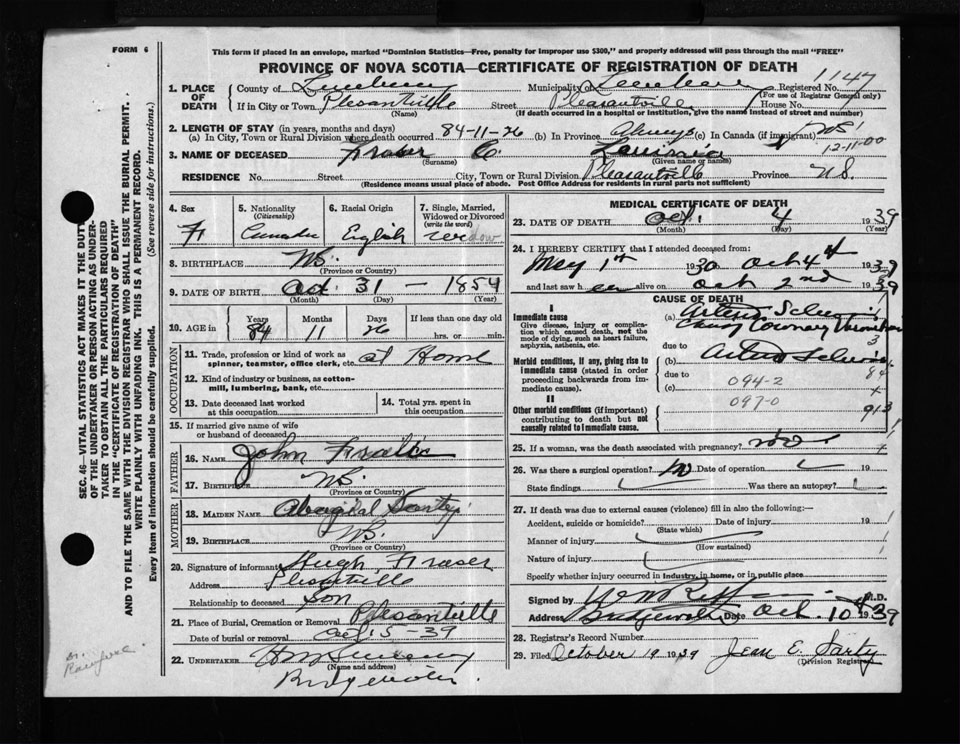 FORM 6
This form if placed in an envelope, marked "Dominion Statistics—Free, penalty for improper use $300," and properly addressed will pass through the mail "FREE"
PROVINCE OF NOVA SCOTIA—CERTIFICATE OF REGISTRATION OF DEATH
1147
1. PLACE OF DEATH County of Lunenburg Municipality of Lunenburg Registered No.
(For use of Registrar General only)
If in City or Town Plesantville Street Pleasantville House No.
(Name) (If death occurred in a hospital or institution, give the name instead of street and number)
2. LENGTH OF STAY (in years, months and days)
(a) In City, Town or Rural Division where death occurred 84-11-26 (b) In Province Always (c) In Canada (if immigrant)
12-11-00
3. NAME OF DECEASED Fraser
(Surname) (Given name or names)
RESIDENCE No. Street City, Town or Rural Division Pleasantville Province N.S.
(Residence means usual place of abode. Post Office Address for residents in rural parts not sufficient)
4. Sex F
5. Nationality (Citizenship) Canada
6. Racial Origin English
7. Single, Married, Widowed or Divorced (write the word) widow
8. BIRTHPLACE N.S.
(Province or Country)
9. DATE OF BIRTH Oct 31 — 1854
(Month) (Day) (Year)
10. AGE in Years Months Days If less than one day
84 11 26 hrs. or min.
OCCUPATION
11. Trade, profession or kind of work as spinner, teamster, office clerk, etc. at Home
12. Kind of industry or business, as cotton-mill, lumbering, bank, etc.
13. Date deceased last worked at this occupation
14. Total yrs. spent in this occupation
15. If married give name of wife or husband of deceased
FATHER
16. Name John
17. Birthplace N.S.
(Province or Country)
MOTHER
18. MAIDEN NAME
19. Birthplace N.S.
(Province or Country)
20. Signature of informant Hugh Fraser
Address Plesantville
Relationship to deceased Son
21. Place of Burial, Cremation or Removal Plesantville
Date of burial or removal Oct 5-39
22. UNDERTAKER
(Name and address)
Bridgewater.
MEDICAL CERTIFICATE OF DEATH
23. DATE OF DEATH Oct. 4 1939
(Month) (Day) (Year)
24. I HEREBY CERTIFY that I attended deceased from:
May 1st 1930 Oct 4th 1939
and last saw her alive on Oct 2nd 1939
CAUSE OF DEATH
I
Immediate cause (a)
Give disease, injury or complication which caused death, not the mode of dying, such as heart failure, asphyxia, asthenia, etc.
due to
Morbid conditions, if any, giving rise to immediate cause (stated in order proceeding backwards from immediate cause).
(b)
due to
(c) 094-2
II
097-0
Other morbid conditions (if important) contributing to death but not causally related to immediate cause.
25. If a woman, was the death associated with pregnancy? no
26. Was there a surgical operation? no Date of operation 19
State findings Was there an autopsy?
27. If death was due to external causes (violence) fill in also the following:—
Accident, suicide or homicide? Date of injury 19
(State which)
Manner of injury
(How sustained)
Nature of injury
Specify whether injury occurred in industry, in home, or in public place
Signed by M.D.
Address Bridgewater Date Oct. 10 1939
28. Registrar's Record Number
29. Filed October 19 1939 Jean E. Sarty
(Division Registrar)
SEC. 46—VITAL STATISTICS ACT MAKES IT THE DUTY
OF THE UNDERTAKER OR PERSON ACTING AS UNDER-
TAKER TO OBTAIN ALL THE PARTICULARS REQUIRED
IN THE "CERTIFICATE OF REGISTRATION OF DEATH"
AND TO FILE THE SAME WITH THE DIVISION REGISTRAR WHO SHALL ISSUE THE BURIAL PERMIT.
WRITE PLAINLY WITH UNFADING INK. THIS IS A PERMANENT RECORD.
Every item of information should be carefully supplied. (See reverse side for instructions.)